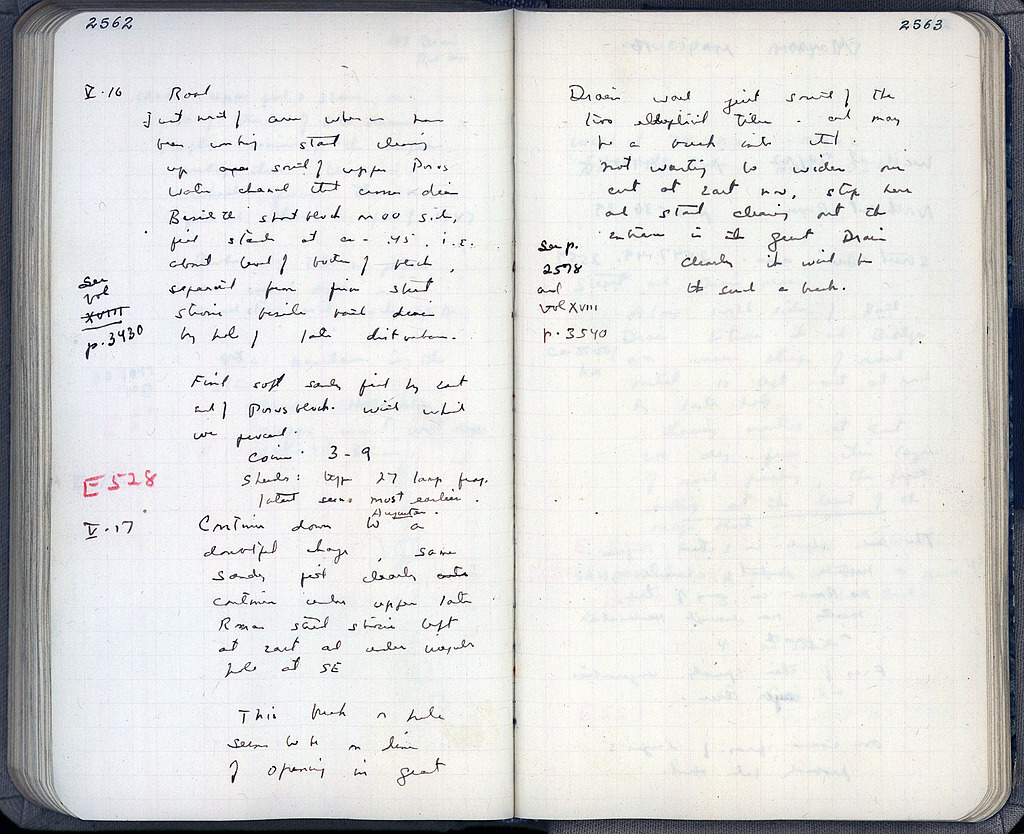 2562
V · 16 Road
Just north of area where we have
been working start clearing
up area south of upper Poros
water channel that crosses drain
Beside the short block on OO side,
first stands at ca - .45. i.e.
about level of bottom of block,
separated from firm street
stroses beside road drain
by hole of late disturbance.
See
Vol
XVIII
p. 3430
First soft sandy fill by east
end of Poros block. with what
we
Coins: 3 - 9
E 528
Sherds: type 27 lamp frag.
latest seems most earlier.
Augustan.
V · 17 Continue down to a
doubtful change, same
sandy fill clearly
continues under upper late
Roman street stroses left
at east and under
hole at SE
This break or hole
seems to be on line
of opening in great
2563
Drain wall just south of the
two elliptical tiles - and may
be a break into it.
Not wanting to widen our
cut at east now, stop here
and start clearing out the
entrance in the great Drain
Clearly it will be
to such a break.
See p.
2578
and
Vol XVIII
p. 3540